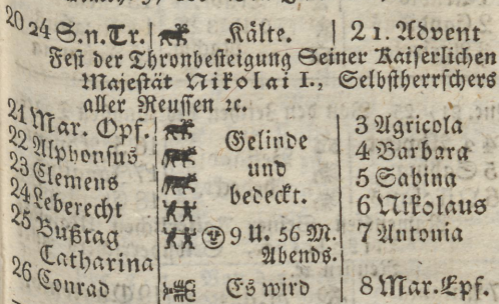 20 24 S.n.Tr. Kälte. 2 1. Advent
Fest der Thronbesteigung Seiner Kaiserlichen
Majestät Nikolai I., Selbstherrschers
aller Reussen ꝛc.
21 Mar. Opf. 3 Agricola
22 Alphonsus Gelinde 4 Barbara
23 Clemens und 5 Sabina
24 Leberecht bedeckt. 6 Nikolaus
25 Bußtag 9 U. 56 M. 7 Antonia
Catharina Abends.
26 Conrad Es wird 8 Mar. Epf.